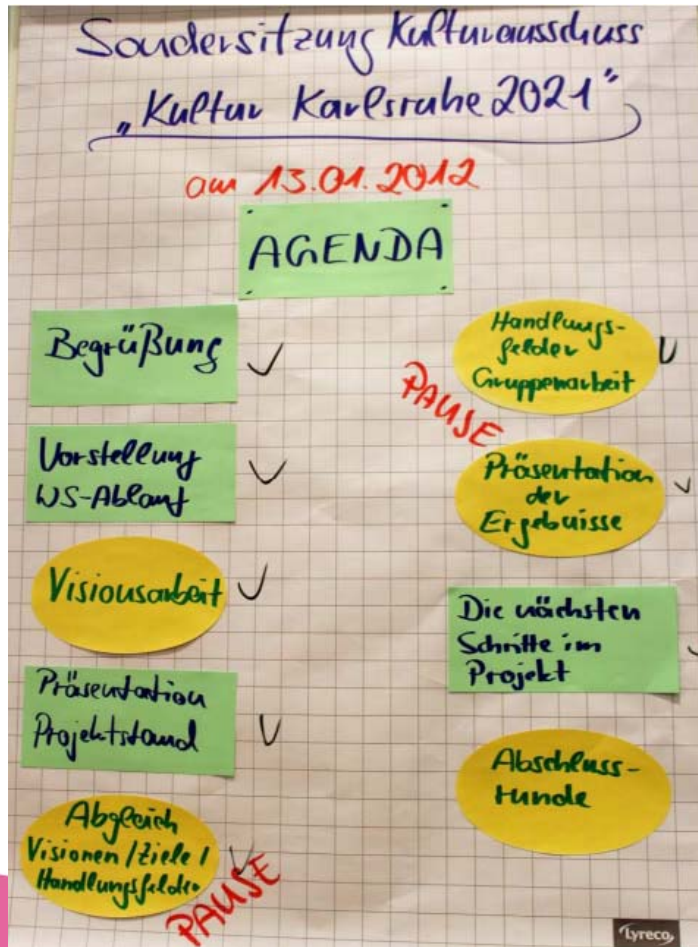 Sondersitzung Kulturausschuss
„Kultur Karlsruhe 2021"
am 13.01.2012
AGENDA
Begrüßung
Vorstellung
WS-Ablauf
Visionsarbeit
Präsentation
Projektstand
Abgleich
Visionen / Ziele /
Handlungsfelder
PAUSE
Handlungs-
felder
Gruppenarbeit
PAUSE
Präsentation
der
Ergebnisse
Die nächsten
Schritte im
Projekt
Abschluss-
runde
Lyreco